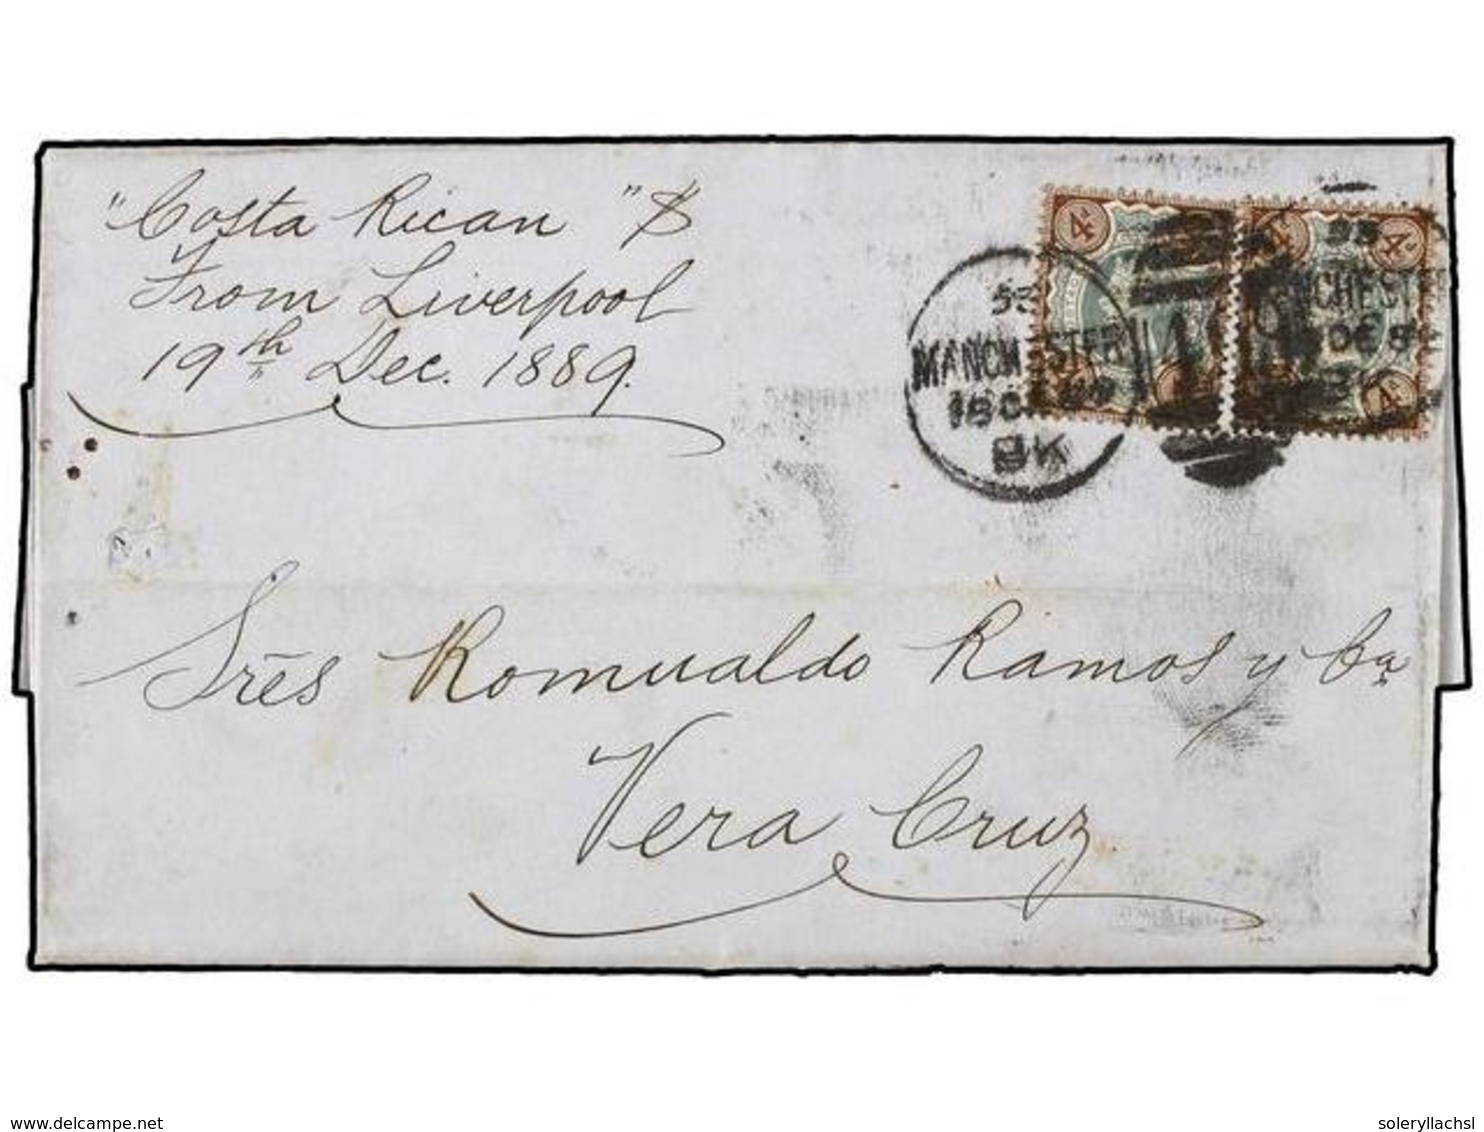 "Costa Rican" $
From Liverpool
19th Dec. 1889.
4d 4d 4d
53
MANCHESTER
18 DE 89
8 K
MANCHESTER
DE 89
Srēs Romualdo Ramos y Ca
Vera Cruz
delcampe.net
soleryllachsl